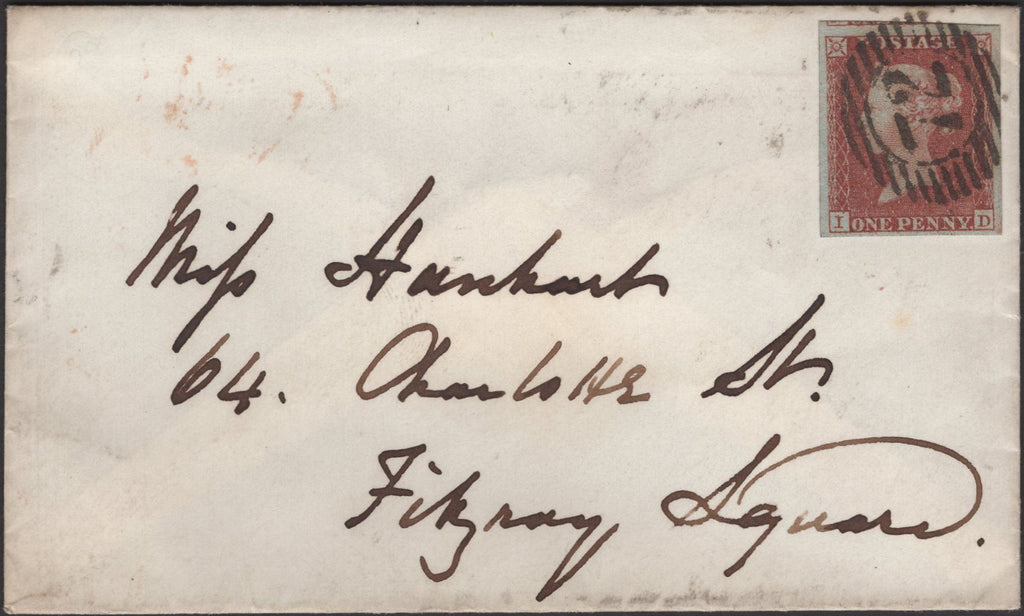 POSTAGE
12
I ONE PENNY. D
Miss Hanhart
64. Charlotte St.
Fitzroy Square.